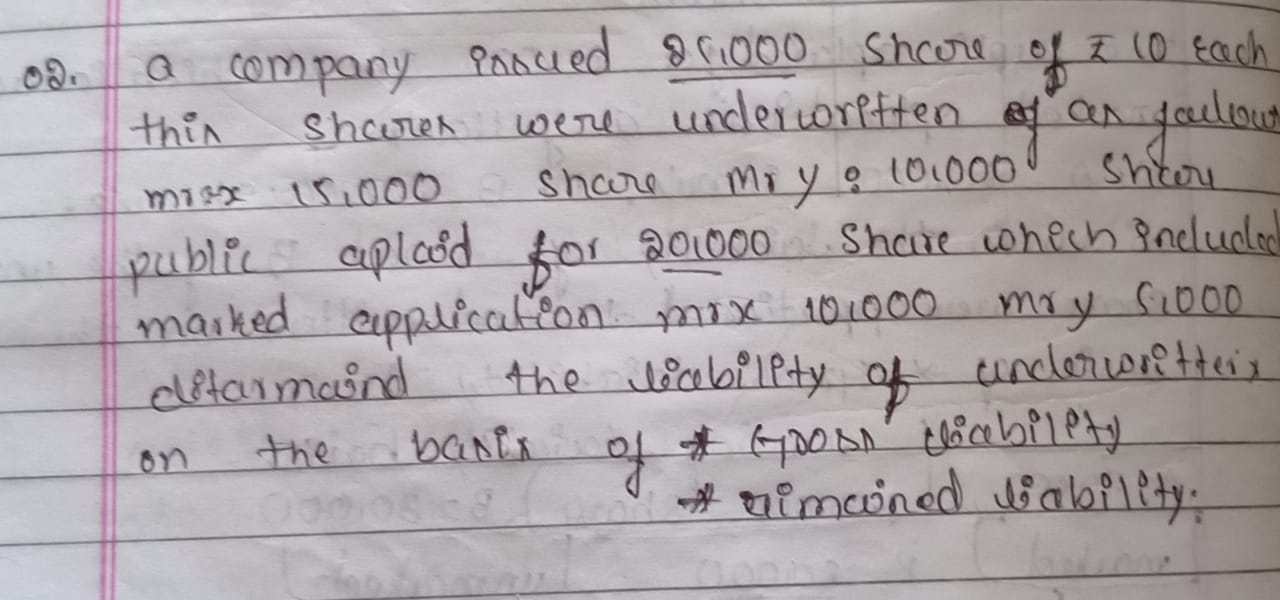 02. a company issued 25,000 share of ₹ 10 each
this shares were underwritten of as follow
mr x 15,000 share mr y : 10,000
public aplaid for 20,000 share which included
marked application mr x 10,000 mr y 5,000
ditarmaind the liability of underwritters
on the basis of * Gross liability
* rimained liability.